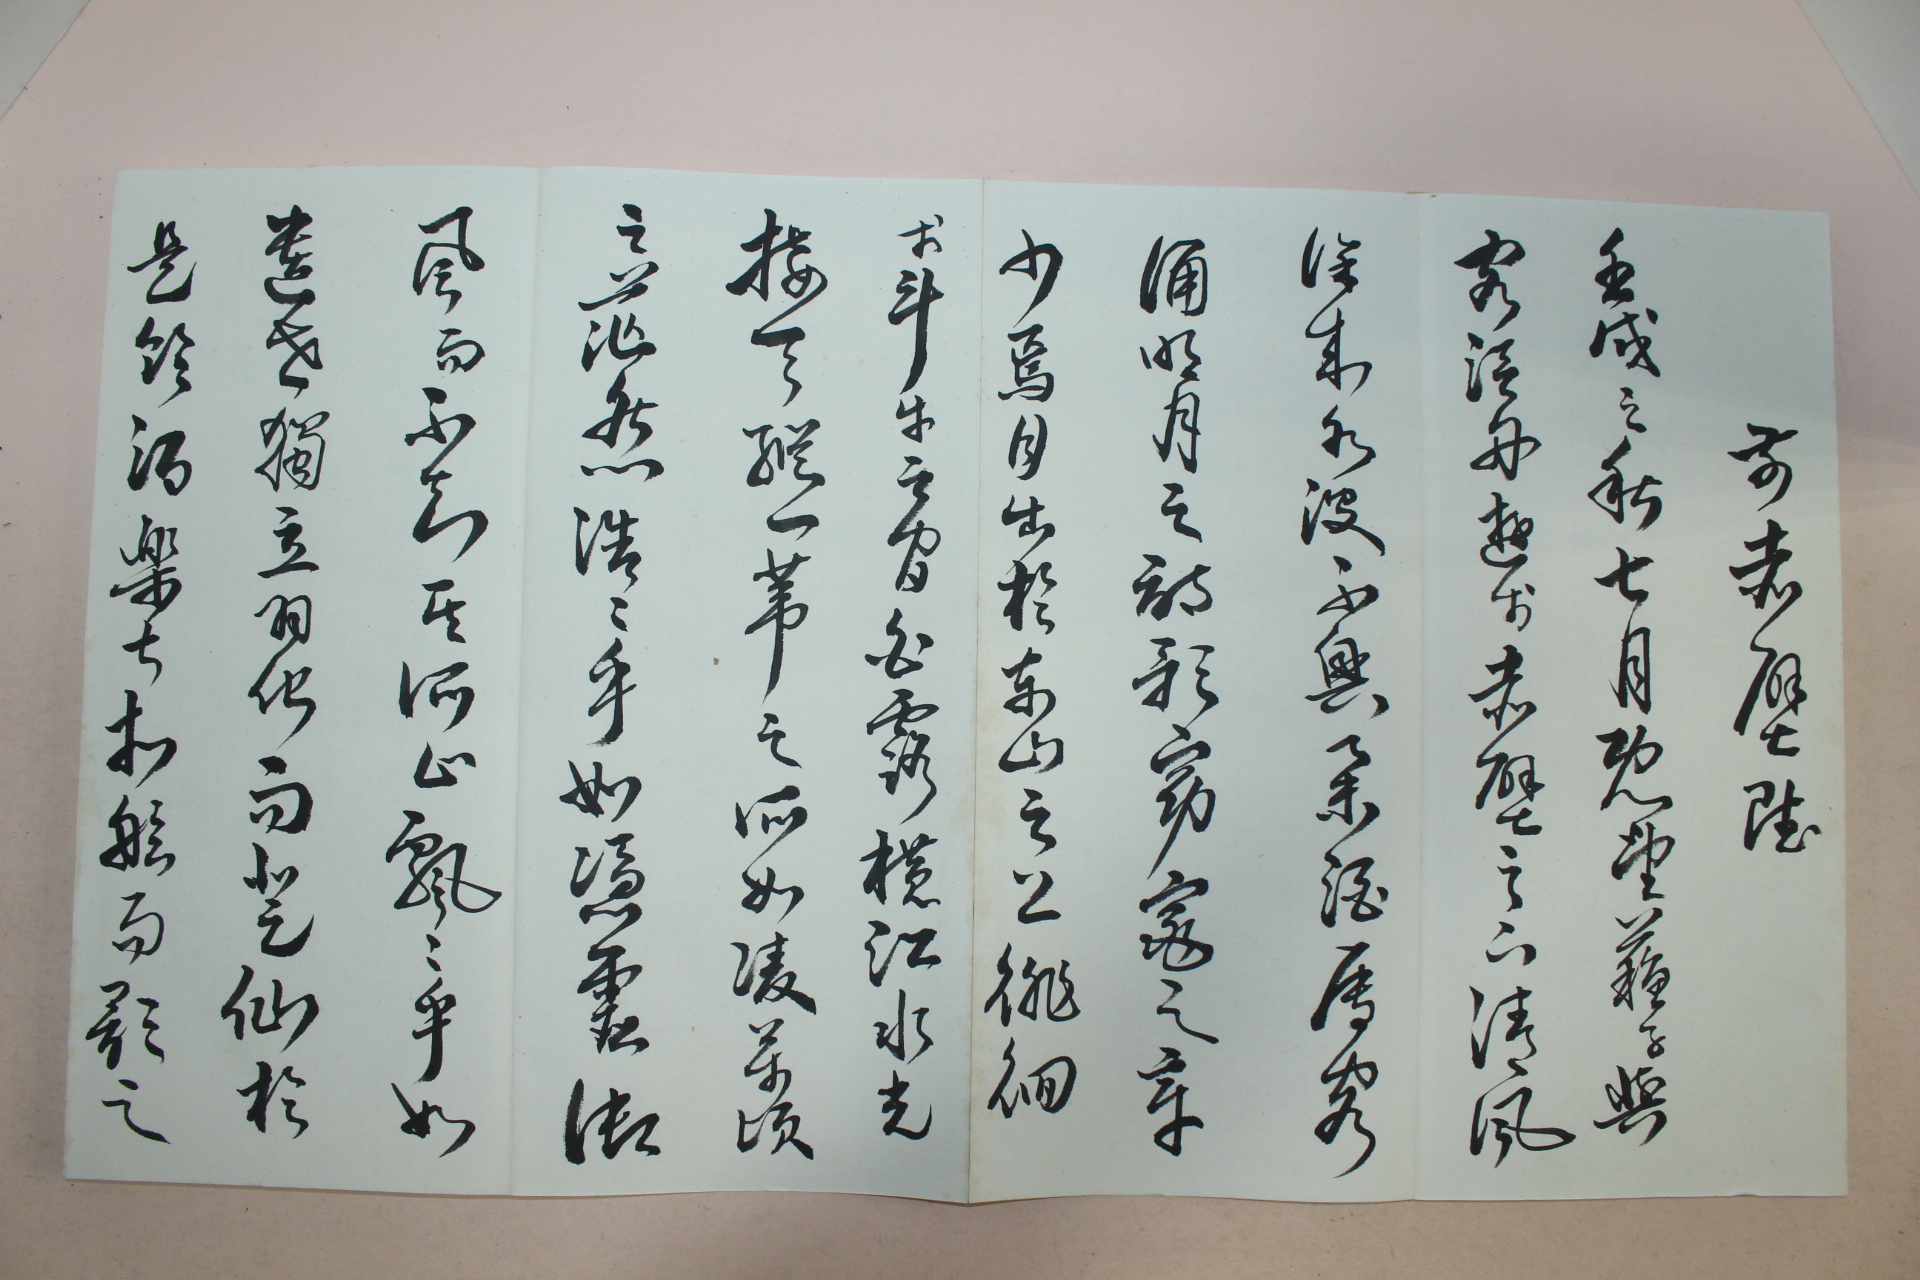 前赤壁賦
壬戌之秋七月既望蘇子與
客泛舟遊於赤壁之下清風
徐來水波不興舉酒屬客
誦明月之詩歌窈窕之章
少焉月出於東山之上徘徊
於斗牛之間白露橫江水光
接天縱一葦之所如凌萬頃
之茫然浩〻乎如憑虛御
風而不知其所止飄〻乎如
遺世獨立羽化而登仙於
是飲酒樂甚扣舷而歌之